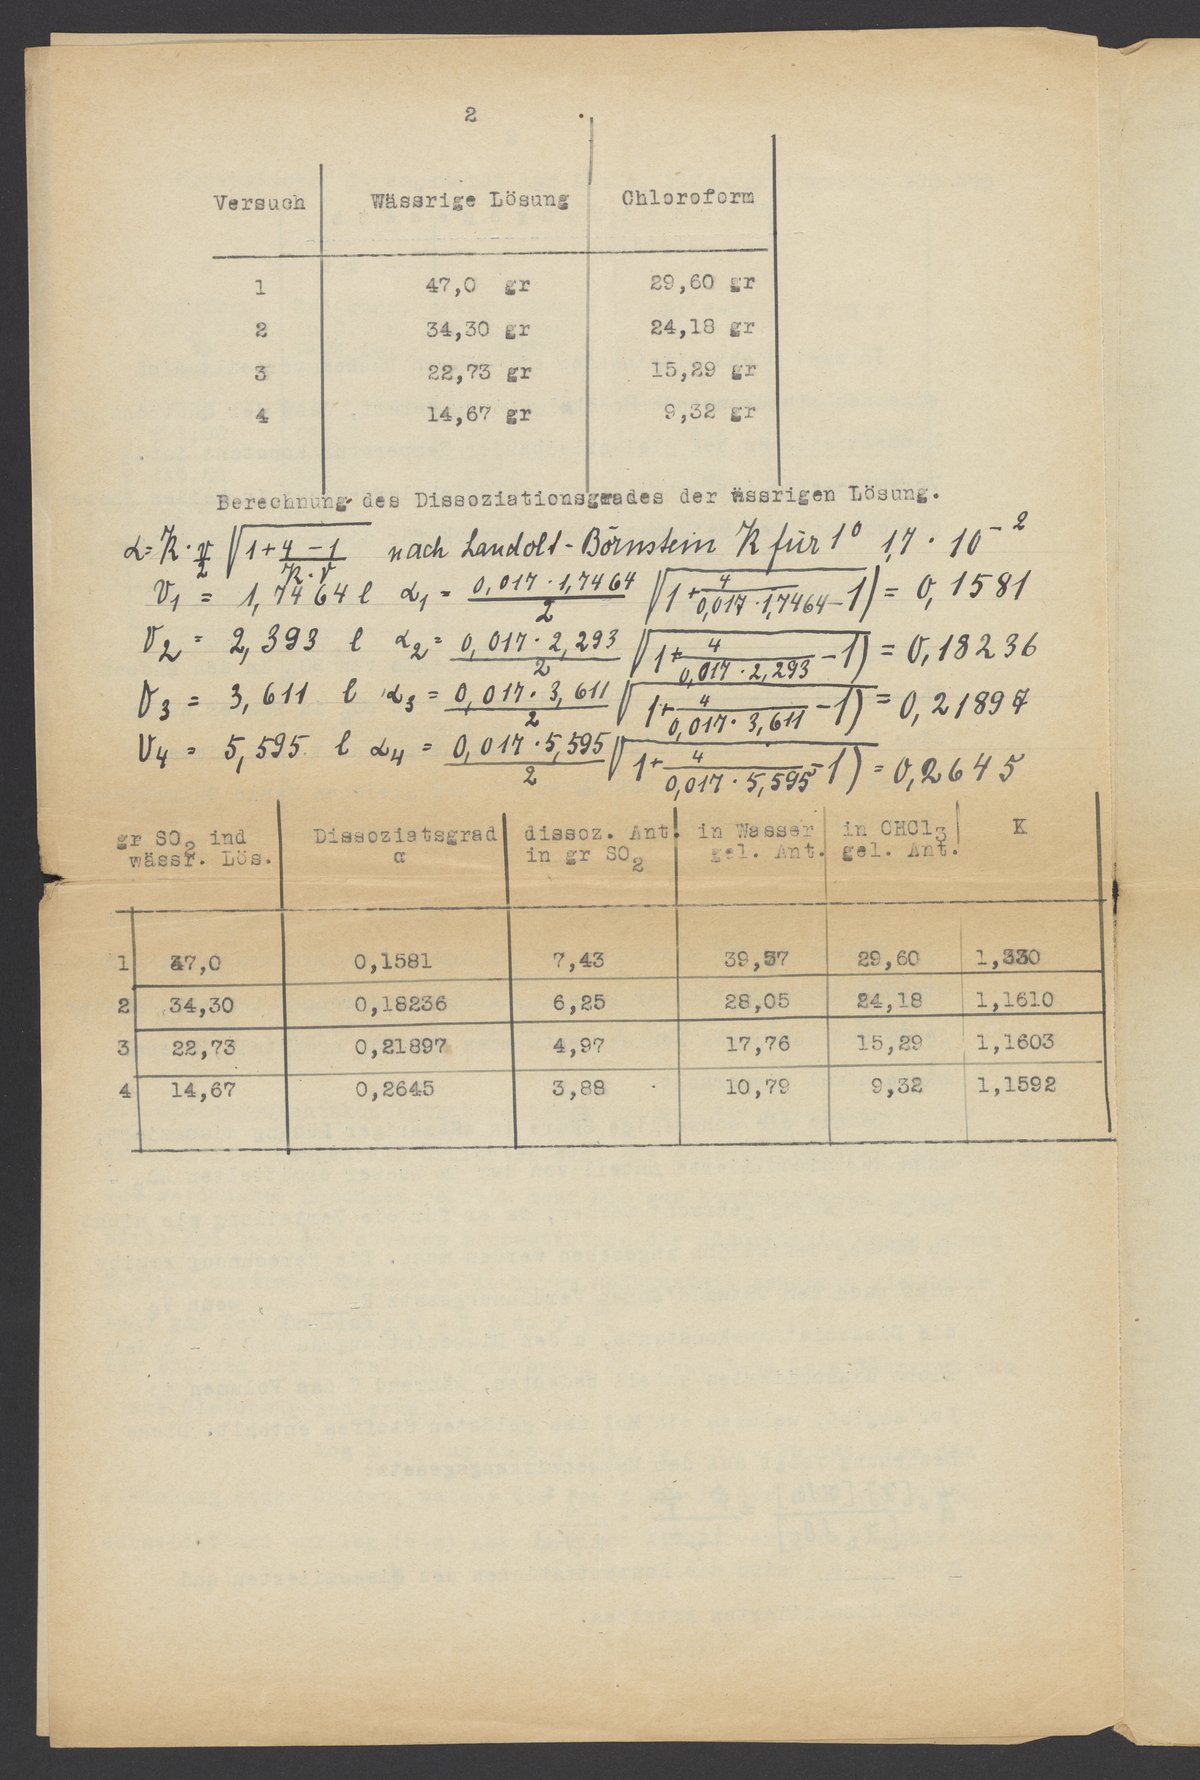 2
Versuch Wässrige Lösung Chloroform
1 47,0 gr 29,60 gr
2 34,30 gr 24,18 gr
3 22,73 gr 15,29 gr
4 14,67 gr 9,32 gr
Berechnung des Dissoziationsgrades der wässrigen Lösung.
α = K · v/2 √(1 + 4/K·v − 1 nach Landolt-Börnstein K für 1° 1,7 · 10⁻²
V₁ = 1,7464 l α₁ = 0,017 · 1,7464/2 √(1 + 4/0,017 · 1,7464 − 1) = 0,1581
V₂ = 2,393 l α₂ = 0,017 · 2,293/2 √(1 + 4/0,017 · 2,293 − 1) = 0,18236
V₃ = 3,611 l α₃ = 0,017 · 3,611/2 √(1 + 4/0,017 · 3,611 − 1) = 0,21897
V₄ = 5,595 l α₄ = 0,017 · 5,595/2 √(1 + 4/0,017 · 5,595 − 1) = 0,2645
gr SO₂ ind Dissoziatsgrad dissoz. Ant. in Wasser in CHCl₃ K
wässr. Lös. α in gr SO₂ gel. Ant. gel. Ant.
1 47,0 0,1581 7,43 39,57 29,60 1,330
2 34,30 0,18236 6,25 28,05 24,18 1,1610
3 22,73 0,21897 4,97 17,76 15,29 1,1603
4 14,67 0,2645 3,88 10,79 9,32 1,1592